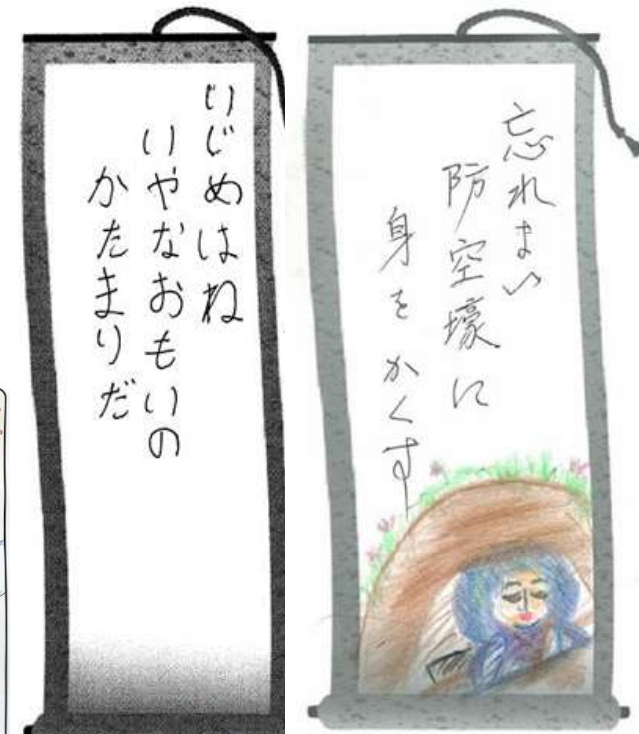 いじめはね
いやなおもいの
かたまりだ
忘れまい
防空壕に
身をかくす